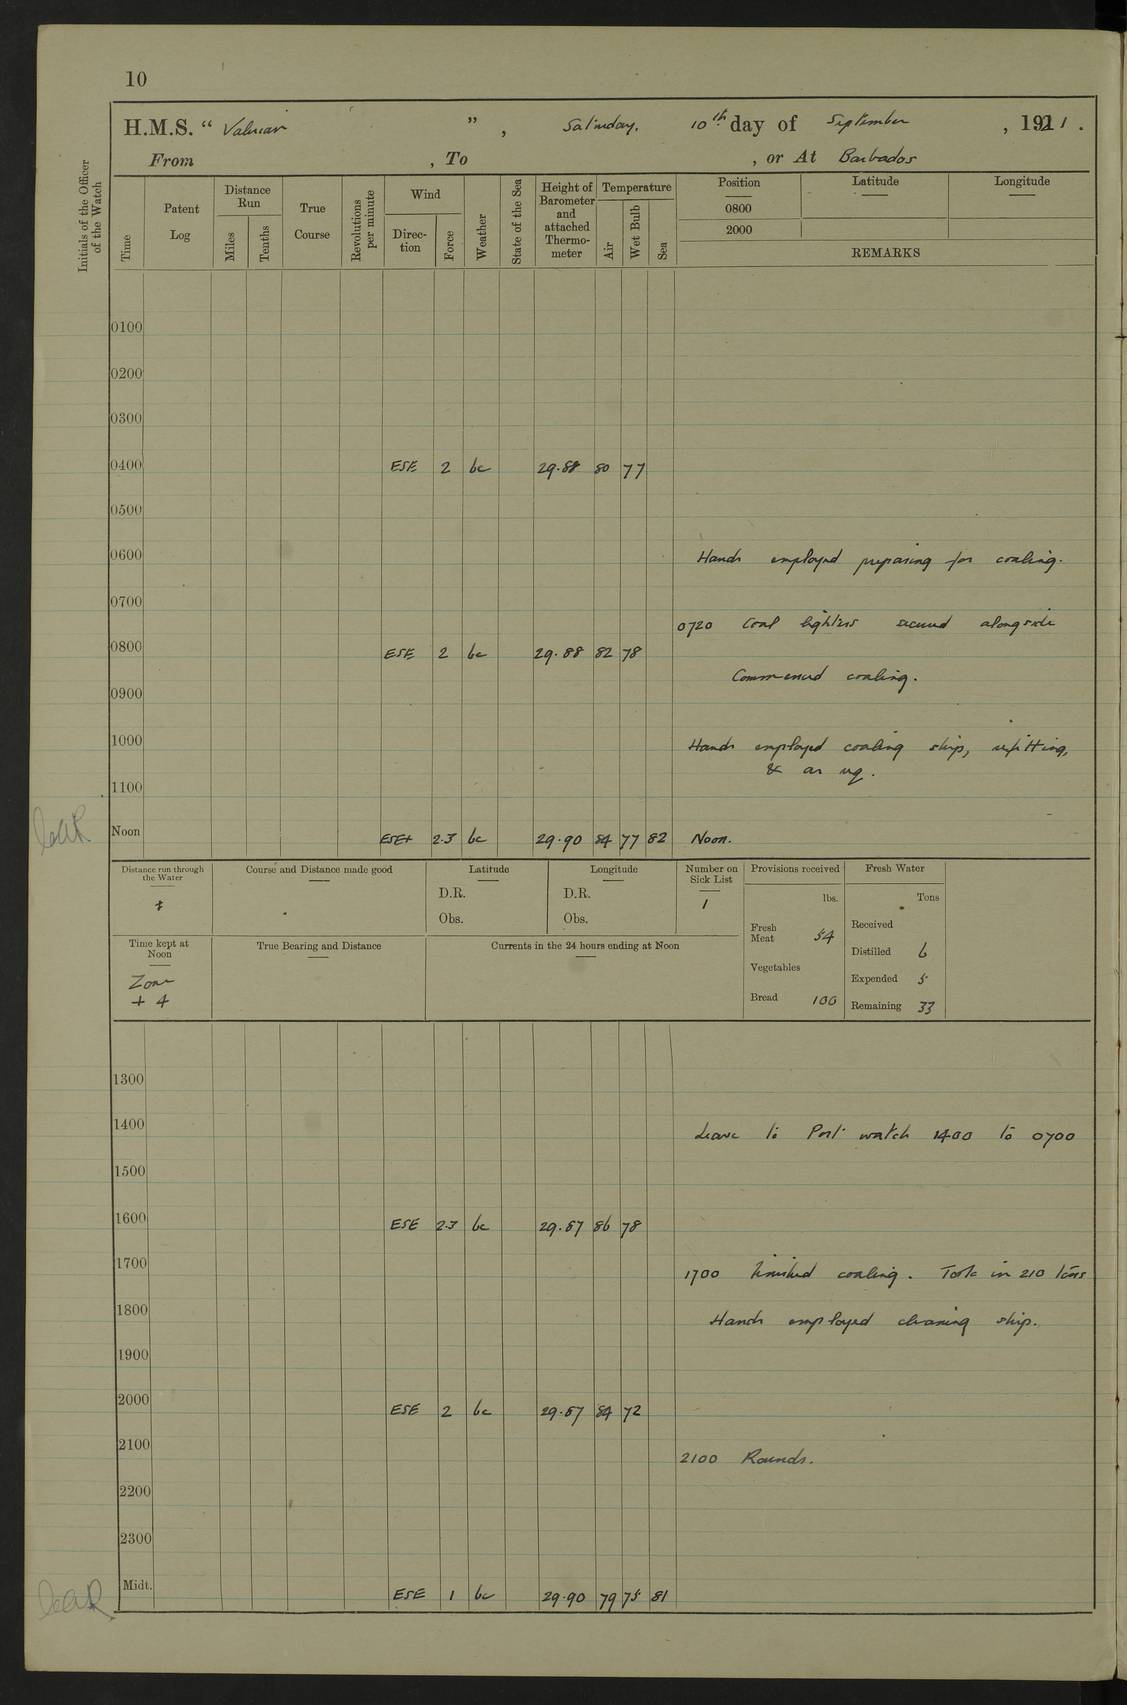 10
H.M.S. “ Valerian ” , Saturday. 10th day of September , 1921 .
From , To , or At Barbados
Initials of the Officer of the Watch
Time
Patent Log
Distance Run
Miles
Tenths
True Course
Revolutions per minute
Wind
Direc-tion
Force
Weather
State of the Sea
Height of Barometer and attached Thermo-meter
Temperature
Air
Wet Bulb
Sea
Position Latitude Longitude
0800
2000
REMARKS
0100
0200
0300
0400 ESE 2 bc 29.88 80 77
0500
0600 Hands employed preparing for coaling.
0700
0720 Coal lighters secured alongside
0800 ESE 2 bc 29.88 82 78
Commenced coaling.
0900
1000 Hands employed coaling ship, refitting,
& as req.
1100
Noon 2.3 bc 29.90 84 77 82 Noon.
Distance run through the Water
Course and Distance made good
Latitude
D.R.
Obs.
Longitude
D.R.
Obs.
Number on Sick List
1
Provisions received
lbs.
Fresh Meat 54
Vegetables
Bread 100
Fresh Water
Tons
Received
Distilled 6
Expended 5
Remaining 33
Time kept at Noon
Zone
+ 4
True Bearing and Distance
Currents in the 24 hours ending at Noon
1300
1400 Leave to Port watch 1400 to 0700
1500
1600 ESE 2.3 bc 29.87 86 78
1700 1700 Finished coaling. Took in 210 tons
1800 Hands employed cleaning ship.
1900
2000 ESE 2 bc 29.87 84 72
2100 2100 Rounds.
2200
2300
Midt. ESE 1 bc 29.90 79 75 81